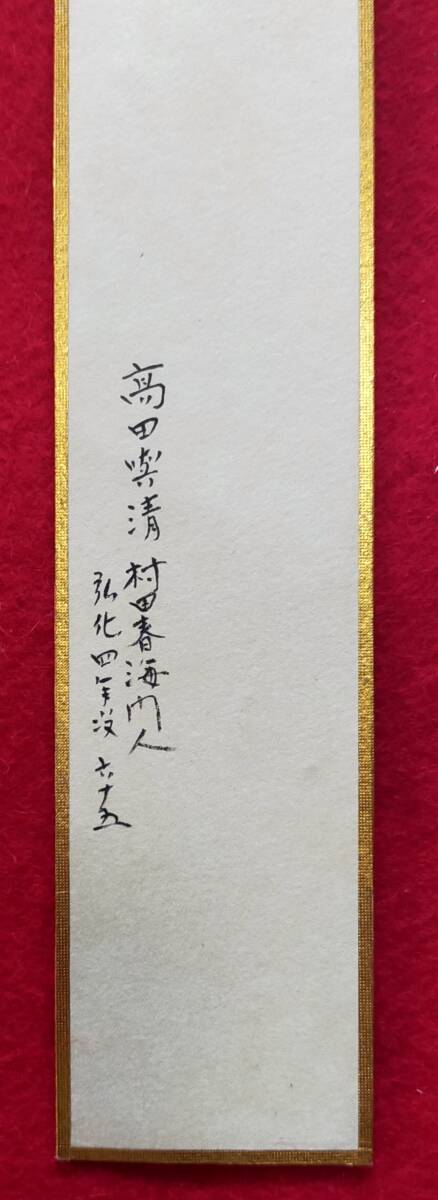 高田與清 村田春海門人
弘化四年没 六十五